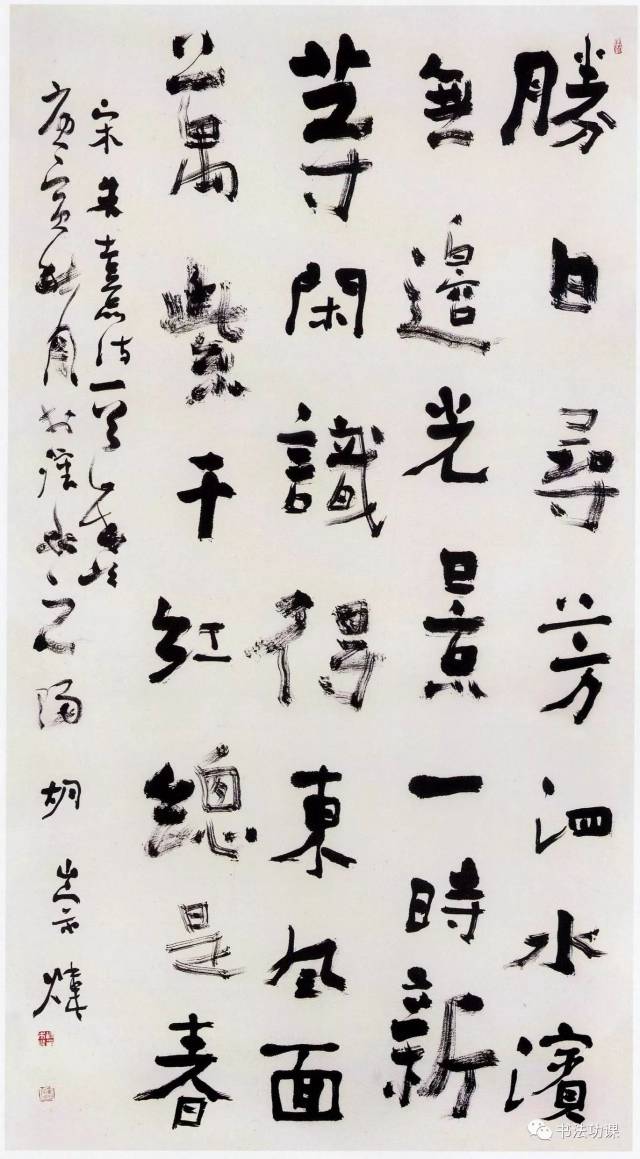 勝日尋芳泗水濱
無邊光景一時新
等閑識得東風面
萬紫千紅總是春
宋朱熹詩一首
庚寅秋月於瀋水之陽 胡崇煒
书法功课